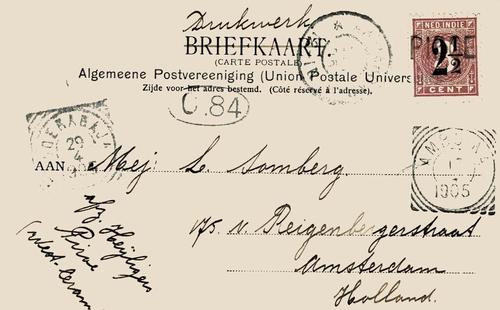 Drukwerk
BRIEFKAART.
(CARTE POSTALE)
Algemeene Postvereeniging (Union Postale Univers
Zijde voor het adres bestemd. (Côté réservé à l'adresse).
NED. INDIE
2½
CENT
C.84
SOERABAJA
29
4
AMBOINA
1905
AAN Mej: L. Somberg
175 v. Reigenbergerstraat
Amsterdam
Holland.
afz. Heijligers
Piroe
(West-Ceram